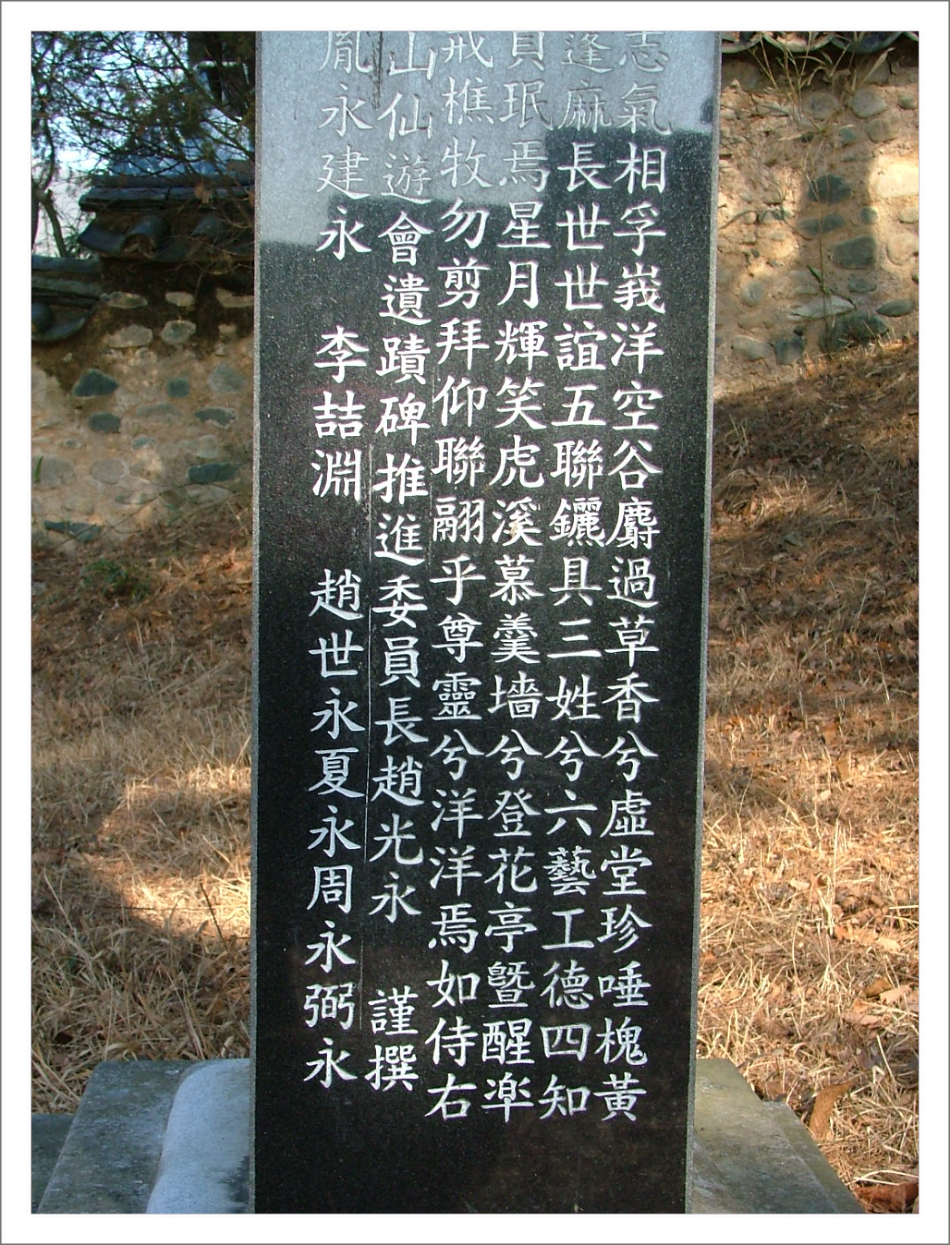 志氣相孚峩洋空谷麝過草香兮虛堂珍唾槐黃
逢麻長世世誼五聯鑣具三姓兮六藝工德四知
貝珉焉星月輝笑虎溪慕羹墻兮登花亭暨醒楽
戒樵牧勿剪拜仰聯翮乎尊靈兮洋洋焉如侍右
山仙遊會遺蹟碑推進委員長趙光永 謹撰
胤永建永 李喆淵 趙世永夏永周永弼永